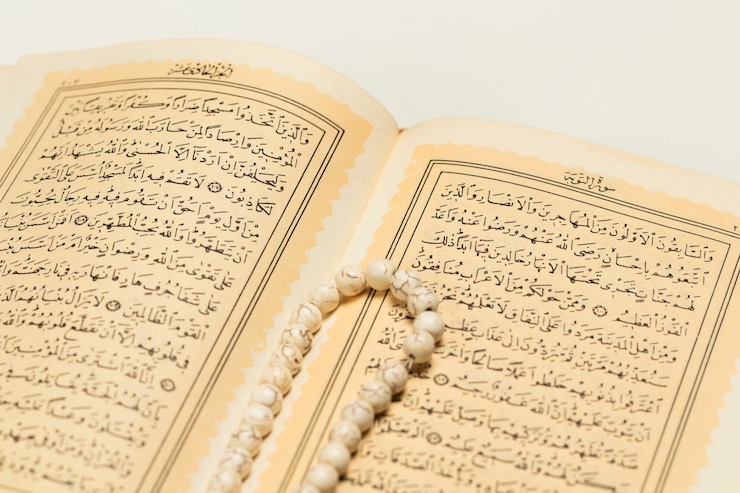 سورة التوبة
وَالسَّابِقُونَ الْاَوَّلُونَ مِنَ الْمُهَاجِرِينَ وَالْاَنْصَارِ وَالَّذِينَ
اتَّبَعُوهُمْ بِاِحْسَانٍ رَضِيَ اللّٰهُ عَنْهُمْ وَرَضُوا عَنْهُ وَاَعَدَّ
لَهُمْ جَنَّاتٍ تَجْرِي تَحْتَهَا الْاَنْهَارُ خَالِدِينَ فِيهَا اَبَدًا ذٰلِكَ
الْفَوْزُ الْعَظِيمُ وَمِمَّنْ حَوْلَكُمْ مِنَ الْاَعْرَابِ مُنَافِقُونَ
وَمِنْ اَهْلِ الْمَدِينَةِ مَرَدُوا عَلَى النِّفَاقِ لَا تَعْلَمُهُمْ نَحْنُ
سَنُعَذِّبُهُمْ مَرَّتَيْنِ ثُمَّ يُرَدُّونَ اِلٰى عَذَابٍ عَظِيمٍ
اعْتَرَفُوا بِذُنُوبِهِمْ خَلَطُوا عَمَلًا صَالِحًا وَاٰخَرَ
اَنْ يَتُوبَ عَلَيْهِمْ اِنَّ اللّٰهَ غَفُورٌ رَحِيمٌ
صَدَقَةً تُطَهِّرُهُمْ وَتُزَكِّيهِمْ بِهَا وَصَلِّ عَلَيْهِمْ اِنَّ
لَهُمْ وَاللّٰهُ سَمِيعٌ عَلِيمٌ
وَيَاْخُذُ الصَّدَقَاتِ
الجزء الحادي عشر
٢٠٣
وَالَّذِينَ اتَّخَذُوا مَسْجِدًا ضِرَارًا وَكُفْرًا وَتَفْرِيقًا بَيْنَ
الْمُؤْمِنِينَ وَاِرْصَادًا لِمَنْ حَارَبَ اللّٰهَ وَرَسُولَهُ مِنْ قَبْلُ
وَلَيَحْلِفُنَّ اِنْ اَرَدْنَا اِلَّا الْحُسْنٰى وَاللّٰهُ يَشْهَدُ اِنَّهُمْ
لَكَاذِبُونَ لَا تَقُمْ فِيهِ اَبَدًا لَمَسْجِدٌ اُسِّسَ عَلَى التَّقْوٰى
مِنْ اَوَّلِ يَوْمٍ اَحَقُّ اَنْ تَقُومَ فِيهِ فِيهِ رِجَالٌ يُحِبُّونَ
اَنْ يَتَطَهَّرُوا وَاللّٰهُ يُحِبُّ الْمُطَّهِّرِينَ اَفَمَنْ اَسَّسَ بُنْيَانَهُ
عَلٰى تَقْوٰى مِنَ اللّٰهِ وَرِضْوَانٍ خَيْرٌ اَمْ مَنْ اَسَّسَ بُنْيَانَهُ
عَلٰى شَفَا جُرُفٍ هَارٍ فَانْهَارَ بِهِ فِي نَارِ جَهَنَّمَ وَاللّٰهُ
الْقَوْمَ الظَّالِمِينَ لَا يَزَالُ بُنْيَانُهُمُ الَّذِي
فِي قُلُوبِهِمْ اِلَّا اَنْ تَقَطَّعَ قُلُوبُهُمْ وَاللّٰهُ
اِنَّ اللّٰهَ اشْتَرٰى مِنَ الْمُؤْمِنِينَ
بِاَنَّ لَهُمُ الْجَنَّةَ يُقَاتِلُونَ
وَيُقْتَلُونَ وَعْدًا عَلَيْهِ
وَالْقُرْاٰنِ